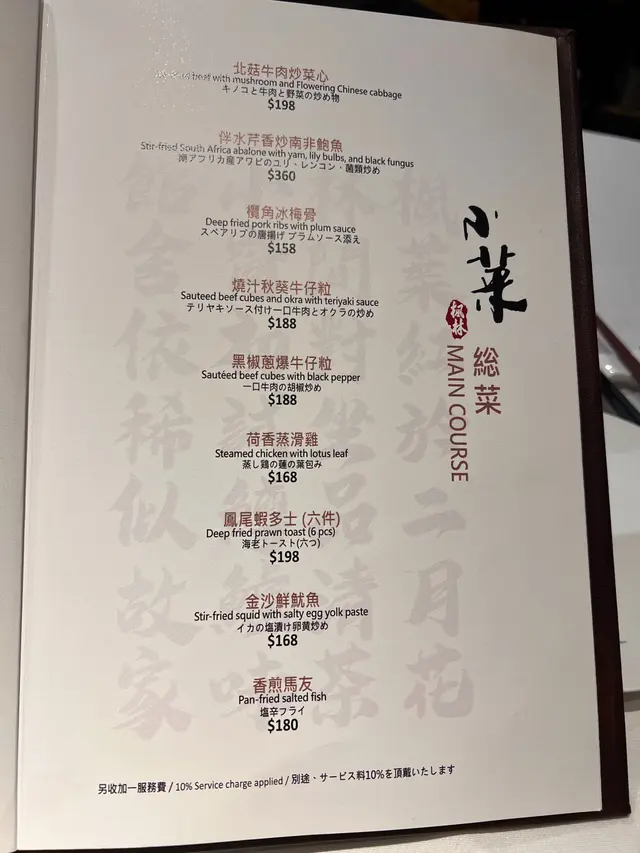 北菇牛肉炒菜心
beef with mushroom and Flowering Chinese cabbage
キノコと牛肉と野菜の炒め物
$198
伴水芹香炒南非鮑魚
Stir-fried South Africa abalone with yam, lily bulbs, and black fungus
南アフリカ産アワビのユリ、レンコン、菌類炒め
$360
欖角冰梅骨
Deep fried pork ribs with plum sauce
スペアリブの唐揚げ プラムソース添え
$158
燒汁秋葵牛仔粒
Sauteed beef cubes and okra with teriyaki sauce
テリヤキソース付け一口牛肉とオクラの炒め
$188
黑椒蔥爆牛仔粒
Sautéed beef cubes with black pepper
一口牛肉の胡椒炒め
$188
荷香蒸滑雞
Steamed chicken with lotus leaf
蒸し鶏の蓮の葉包み
$168
鳳尾蝦多士 (六件)
Deep fried prawn toast (6 pcs)
海老トースト(六つ)
$198
金沙鮮魷魚
Stir-fried squid with salty egg yolk paste
イカの塩漬け卵黄炒め
$168
香煎馬友
Pan-fried salted fish
塩辛フライ
$180
小菜
楓林
総菜
MAIN COURSE
楓葉紅於二月花
館舍依稀似故家
另收加一服務費 / 10% Service charge applied / 別途、サービス料10%を頂戴いたします